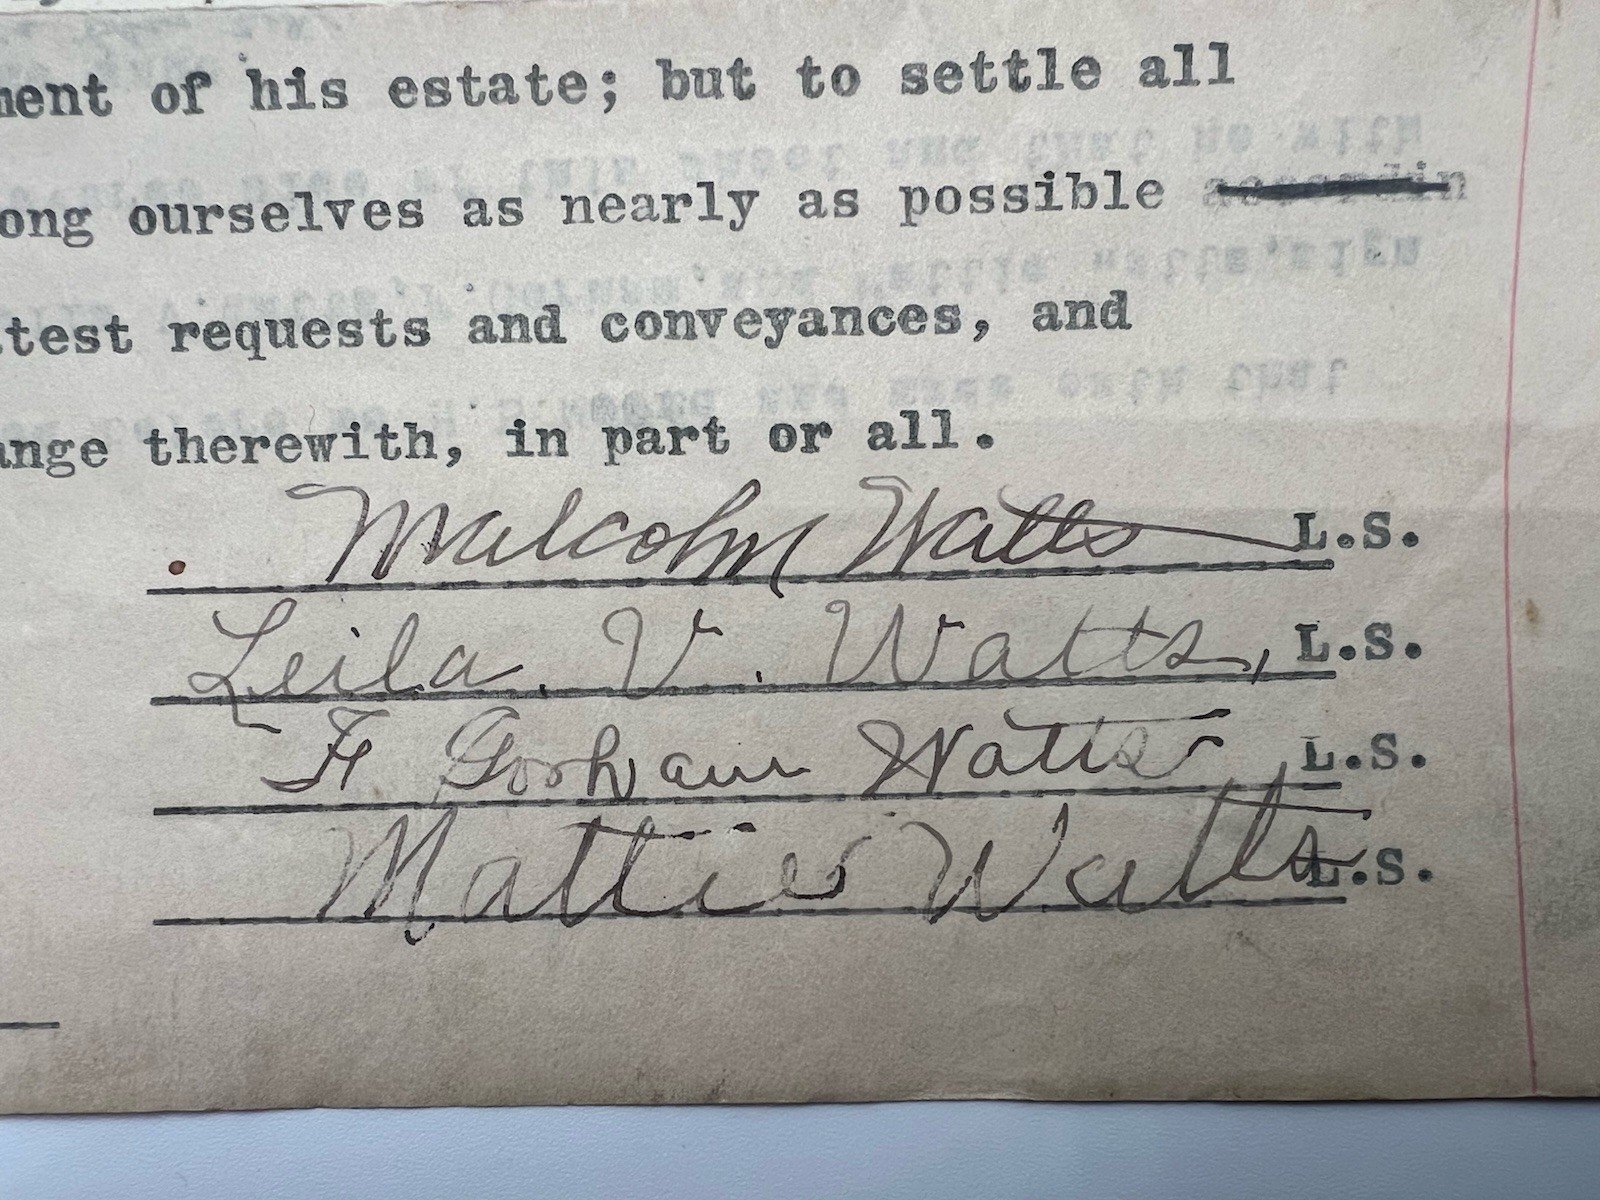 ment of his estate; but to settle all
ong ourselves as nearly as possible
test requests and conveyances, and
ange therewith, in part or all.
Malcohm Watts L.S.
Leila. V. Watts, L.S.
F Gorham Watts L.S.
Mattie Watts L.S.